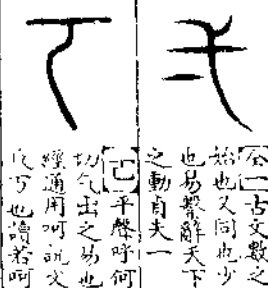 古文數之
始也又同也少
也易繫辭天下
之動貞夫一
平聲呼何
切气出之易也
經通用呵說文
反丂也讀若呵